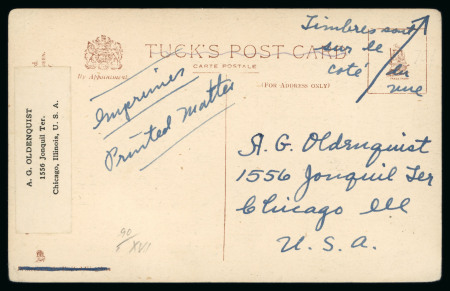 Timbres sont
sur le
coté du
vue
TUCK'S POST CARD
CARTE POSTALE
By Appointment
(FOR ADDRESS ONLY)
Imprimés
Printed Matter
A. G. OLDENQUIST
1556 Jonquil Ter.
Chicago, Illinois, U. S. A.
A. G. Oldenquist
1556 Jonquil Ter
Chicago Ill
U. S. A.
90
XVI